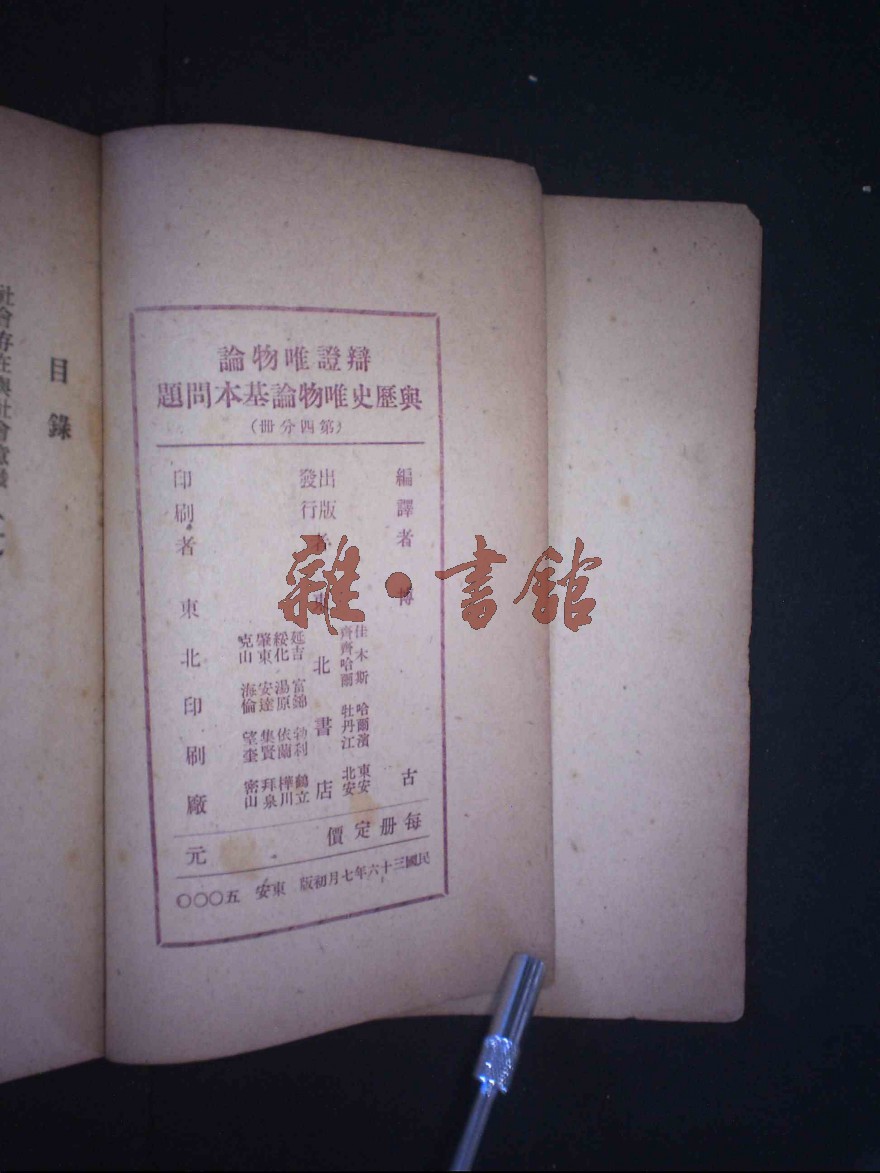 辯證唯物論
與歷史唯物論基本問題
(第四分冊)
編譯者 博古
出版發行者 東北書店
佳木斯 哈爾濱 東安
齊齊哈爾 牡丹江 北安
延吉 富錦 勃利 鶴立
綏化 湯原 依蘭 樺川
肇東 安達 集賢 拜泉
克山 海倫 望奎 密山
印刷者 東北印刷廠
每冊定價 元
民國三十六年七月初版 東安 五〇〇〇
目錄
社會存在與社會意識
雜·書館